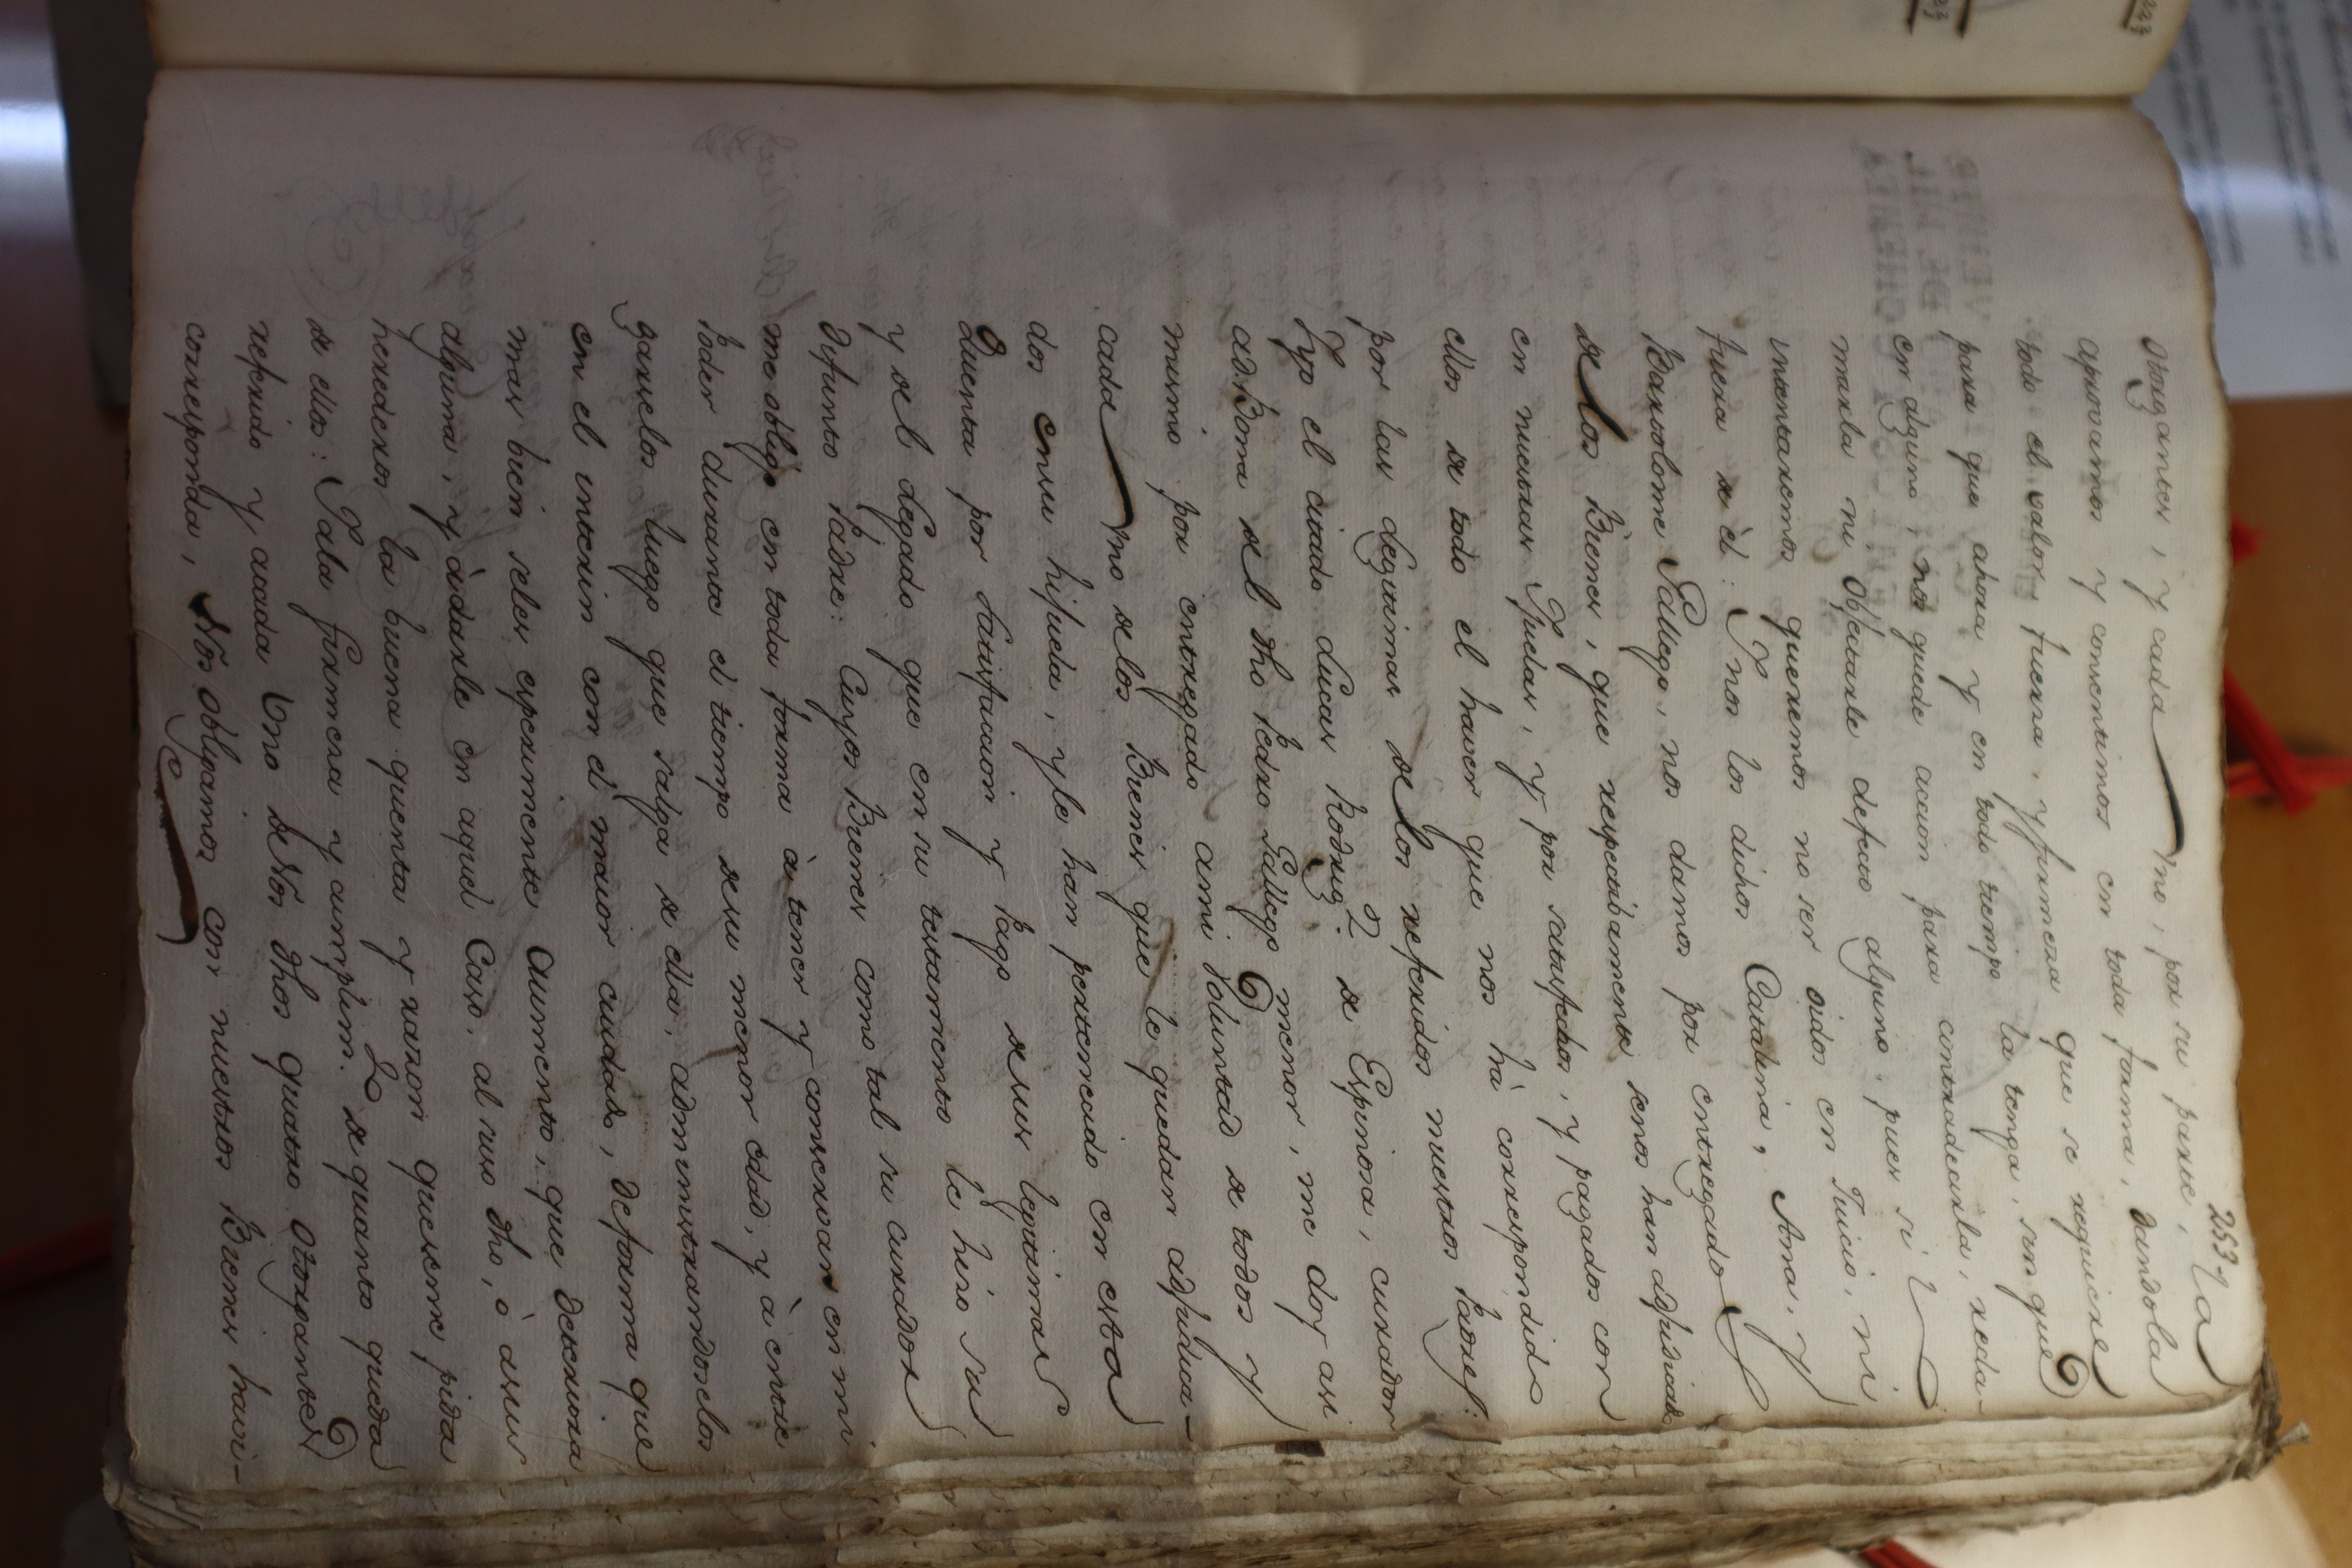 253
otorgantes, y cada Vno, por su parte, la
aprovamos y consentimos en toda forma, dandola
todo el valor, fuerza, y firmeza que se requiere
para que ahora y en todo tiempo la tenga, sin que
en alguno, nos quede accion para contradecirla, recla-
marla ni Objetarle defecto alguno, pues si lo
intentaremos queremos no ser oidos en Juicio, ni
fuera de èl: Y nos los dichos Catalina, Ana, y
Bartolome Gallego, nos damos por entregados
de los Bienes, que respectibamente senos han adjudicado
en nuestras Yjuelas, y por satisfechos, y pagados con
ellos de todo el haver que nos hà correspondido
por las legitimas de los referidos nuestros Padres:
Y yo el citado Lucas Rodrig.z de Espinosa, curador
ad Bona del dho Pedro Gallego menor, me doy asi
mismo por entregado ami voluntad de todos y
cada Vno delos Bienes que le quedan adjudica-
dos ensu hijuela, y le han pertenecido en esta
Quenta por satisfacion y Pago desus legitimas
y del Legado que en su testamento le hizo su
difunto Padre: Cuyos Bienes como tal su curador
me obligo en toda forma à tener y conservar en mi
Poder durante el tiempo desu menor edad, y à entre
garselos luego que salga de ella, administrandoselos
en el interin con el maior cuidado, deforma que
mas bien seles experimente Aumento, que decaiga
alguna, y àdarle en aquel Caso, al suso dho, ò asus
herederos la buena quenta y razon que seme pida
de ellos: I ala firmeza y cumplim.to de quanto queda
referido y acada Vno de Nos dhos quatro Otorgantes
corresponda, Nos obligamos con nuestros Bienes havi-
223